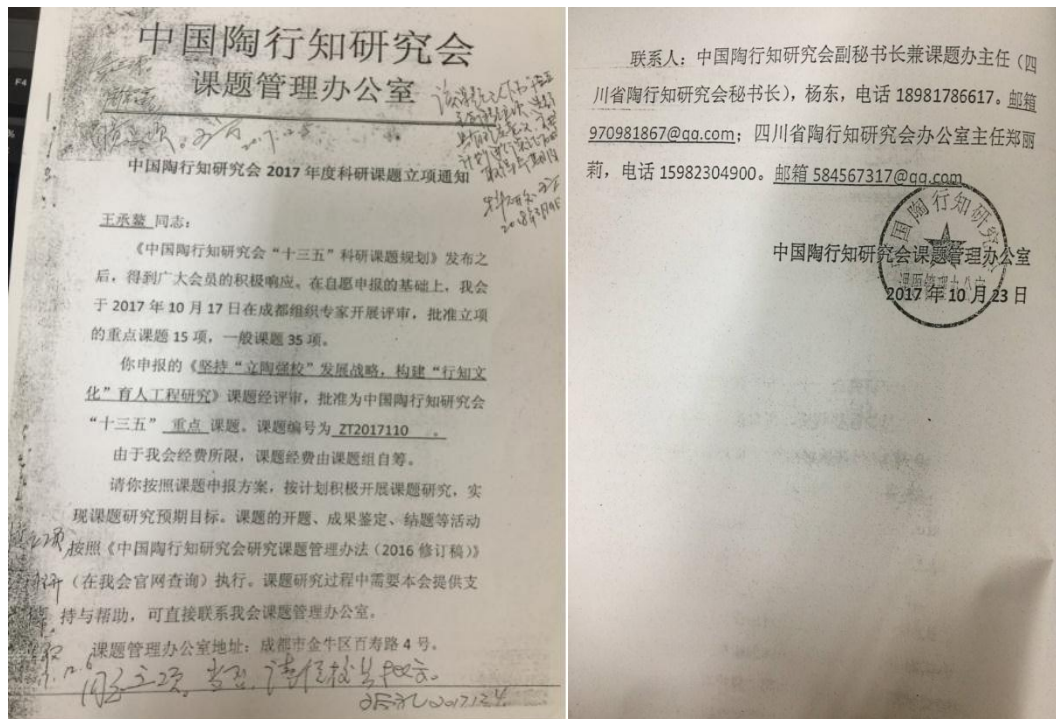 中国陶行知研究会
课题管理办公室
中国陶行知研究会 2017 年度科研课题立项通知
王承鳌 同志：
《中国陶行知研究会“十三五”科研课题规划》发布之
后，得到广大会员的积极响应。在自愿申报的基础上，我会
于 2017 年 10 月 17 日在成都组织专家开展评审，批准立项
的重点课题 15 项，一般课题 35 项。
你申报的《坚持“立陶强校”发展战略，构建“行知文
化”育人工程研究》课题经评审，批准为中国陶行知研究会
“十三五” 重点 课题。课题编号为 ZT2017110 。
由于我会经费所限，课题经费由课题组自筹。
请你按照课题申报方案，按计划积极开展课题研究，实
现课题研究预期目标。课题的开题、成果鉴定、结题等活动
按照《中国陶行知研究会研究课题管理办法（2016 修订稿）》
（在我会官网查询）执行。课题研究过程中需要本会提供支
持与帮助，可直接联系我会课题管理办公室。
课题管理办公室地址：成都市金牛区百寿路 4 号。
联系人：中国陶行知研究会副秘书长兼课题办主任（四
川省陶行知研究会秘书长），杨东，电话 18981786617。邮箱
970981867@qq.com；四川省陶行知研究会办公室主任郑丽
莉，电话 15982304900。邮箱 584567317@qq.com
中国陶行知研究会课题管理办公室
2017 年 10 月 23 日